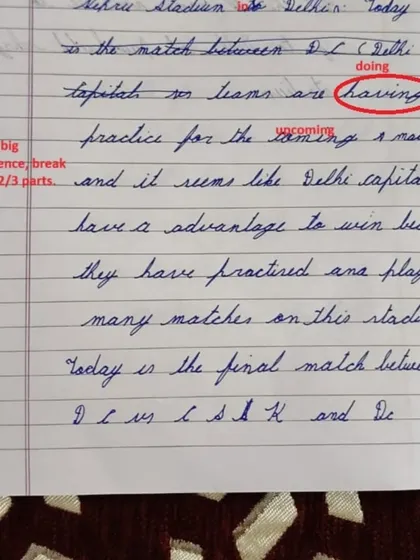 Nehru Stadium in Delhi. Today
is the match between D C (Delhi
doing
Capitals vs teams are having
practice for the coming
upcoming
big
ence, break
2/3 parts.
and it seems like Delhi capita
have a advantage to win be
they have practised and play
many matches on this stadi
Today is the final match betwe
D C vs C S K and Dc